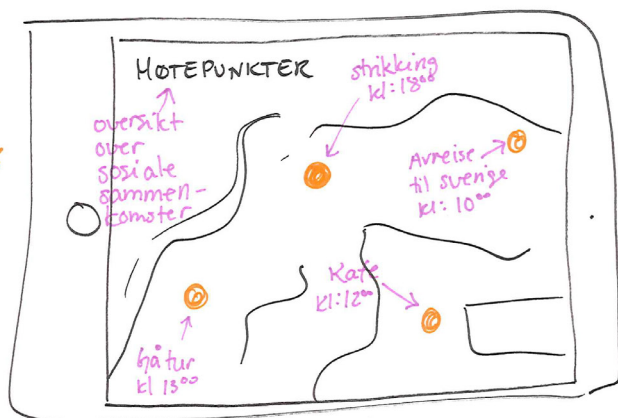 MØTEPUNKTER
oversikt
over
sosiale
sammen-
komster
strikking
kl:18⁰⁰
Avreise
til sverige
kl: 10⁰⁰
Kafe
kl:12⁰⁰
gåtur
kl 13⁰⁰